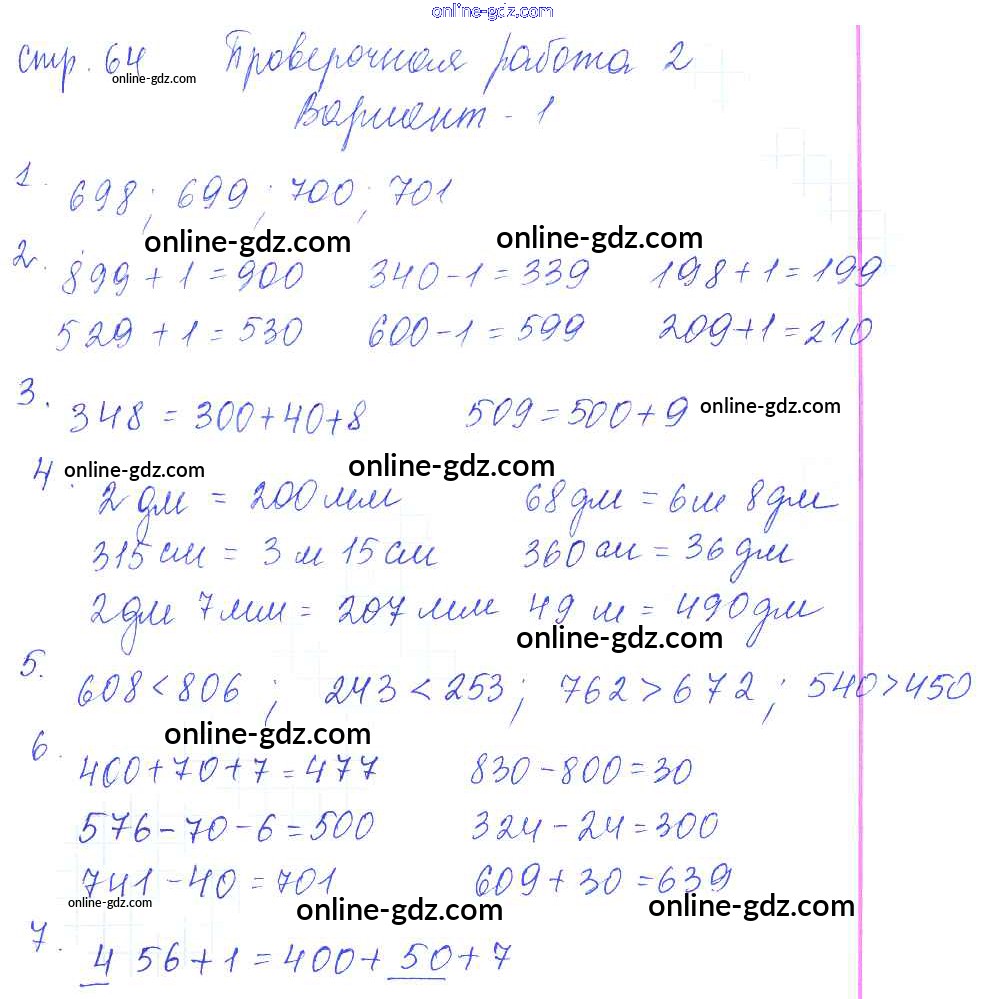 online-gdz.com
стр. 64 Проверочная работа 2
online-gdz.com
Вариант - 1
1. 698; 699; 700; 701
online-gdz.com online-gdz.com
2. 899 + 1 = 900 340 - 1 = 339 198 + 1 = 199
529 + 1 = 530 600 - 1 = 599 209 + 1 = 210
3. 348 = 300 + 40 + 8 509 = 500 + 9 online-gdz.com
online-gdz.com online-gdz.com
4. 2 дм = 200 мм 68 дм = 6 м 8 дм
315 см = 3 м 15 см 360 см = 36 дм
2 дм 7 мм = 207 мм 49 м = 490 дм
online-gdz.com
5. 608 < 806 ; 243 < 253 ; 762 > 672 ; 540 > 450
online-gdz.com
6. 400 + 70 + 7 = 477 830 - 800 = 30
576 - 70 - 6 = 500 324 - 24 = 300
741 - 40 = 701 609 + 30 = 639
online-gdz.com online-gdz.com online-gdz.com
7. 4 56 + 1 = 400 + 50 + 7